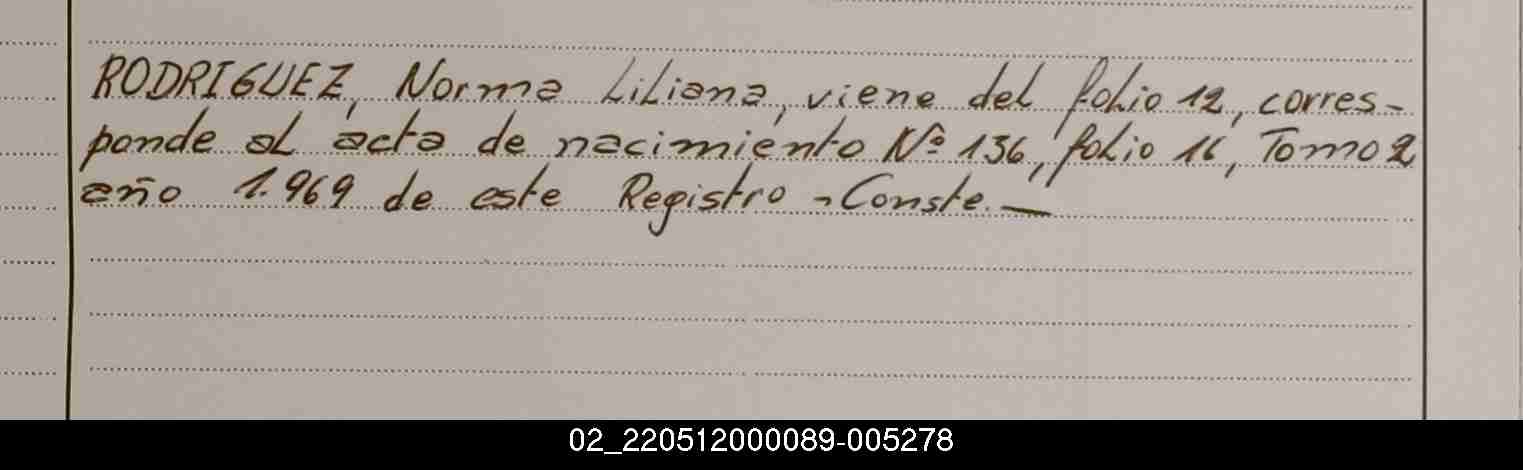 RODRIGUEZ, Norma Liliana, viene del folio 12, corres-
ponde al acta de nacimiento Nº 136, folio 16, Tomo 2
año 1.969 de este Registro -Conste.—
02_220512000089-005278